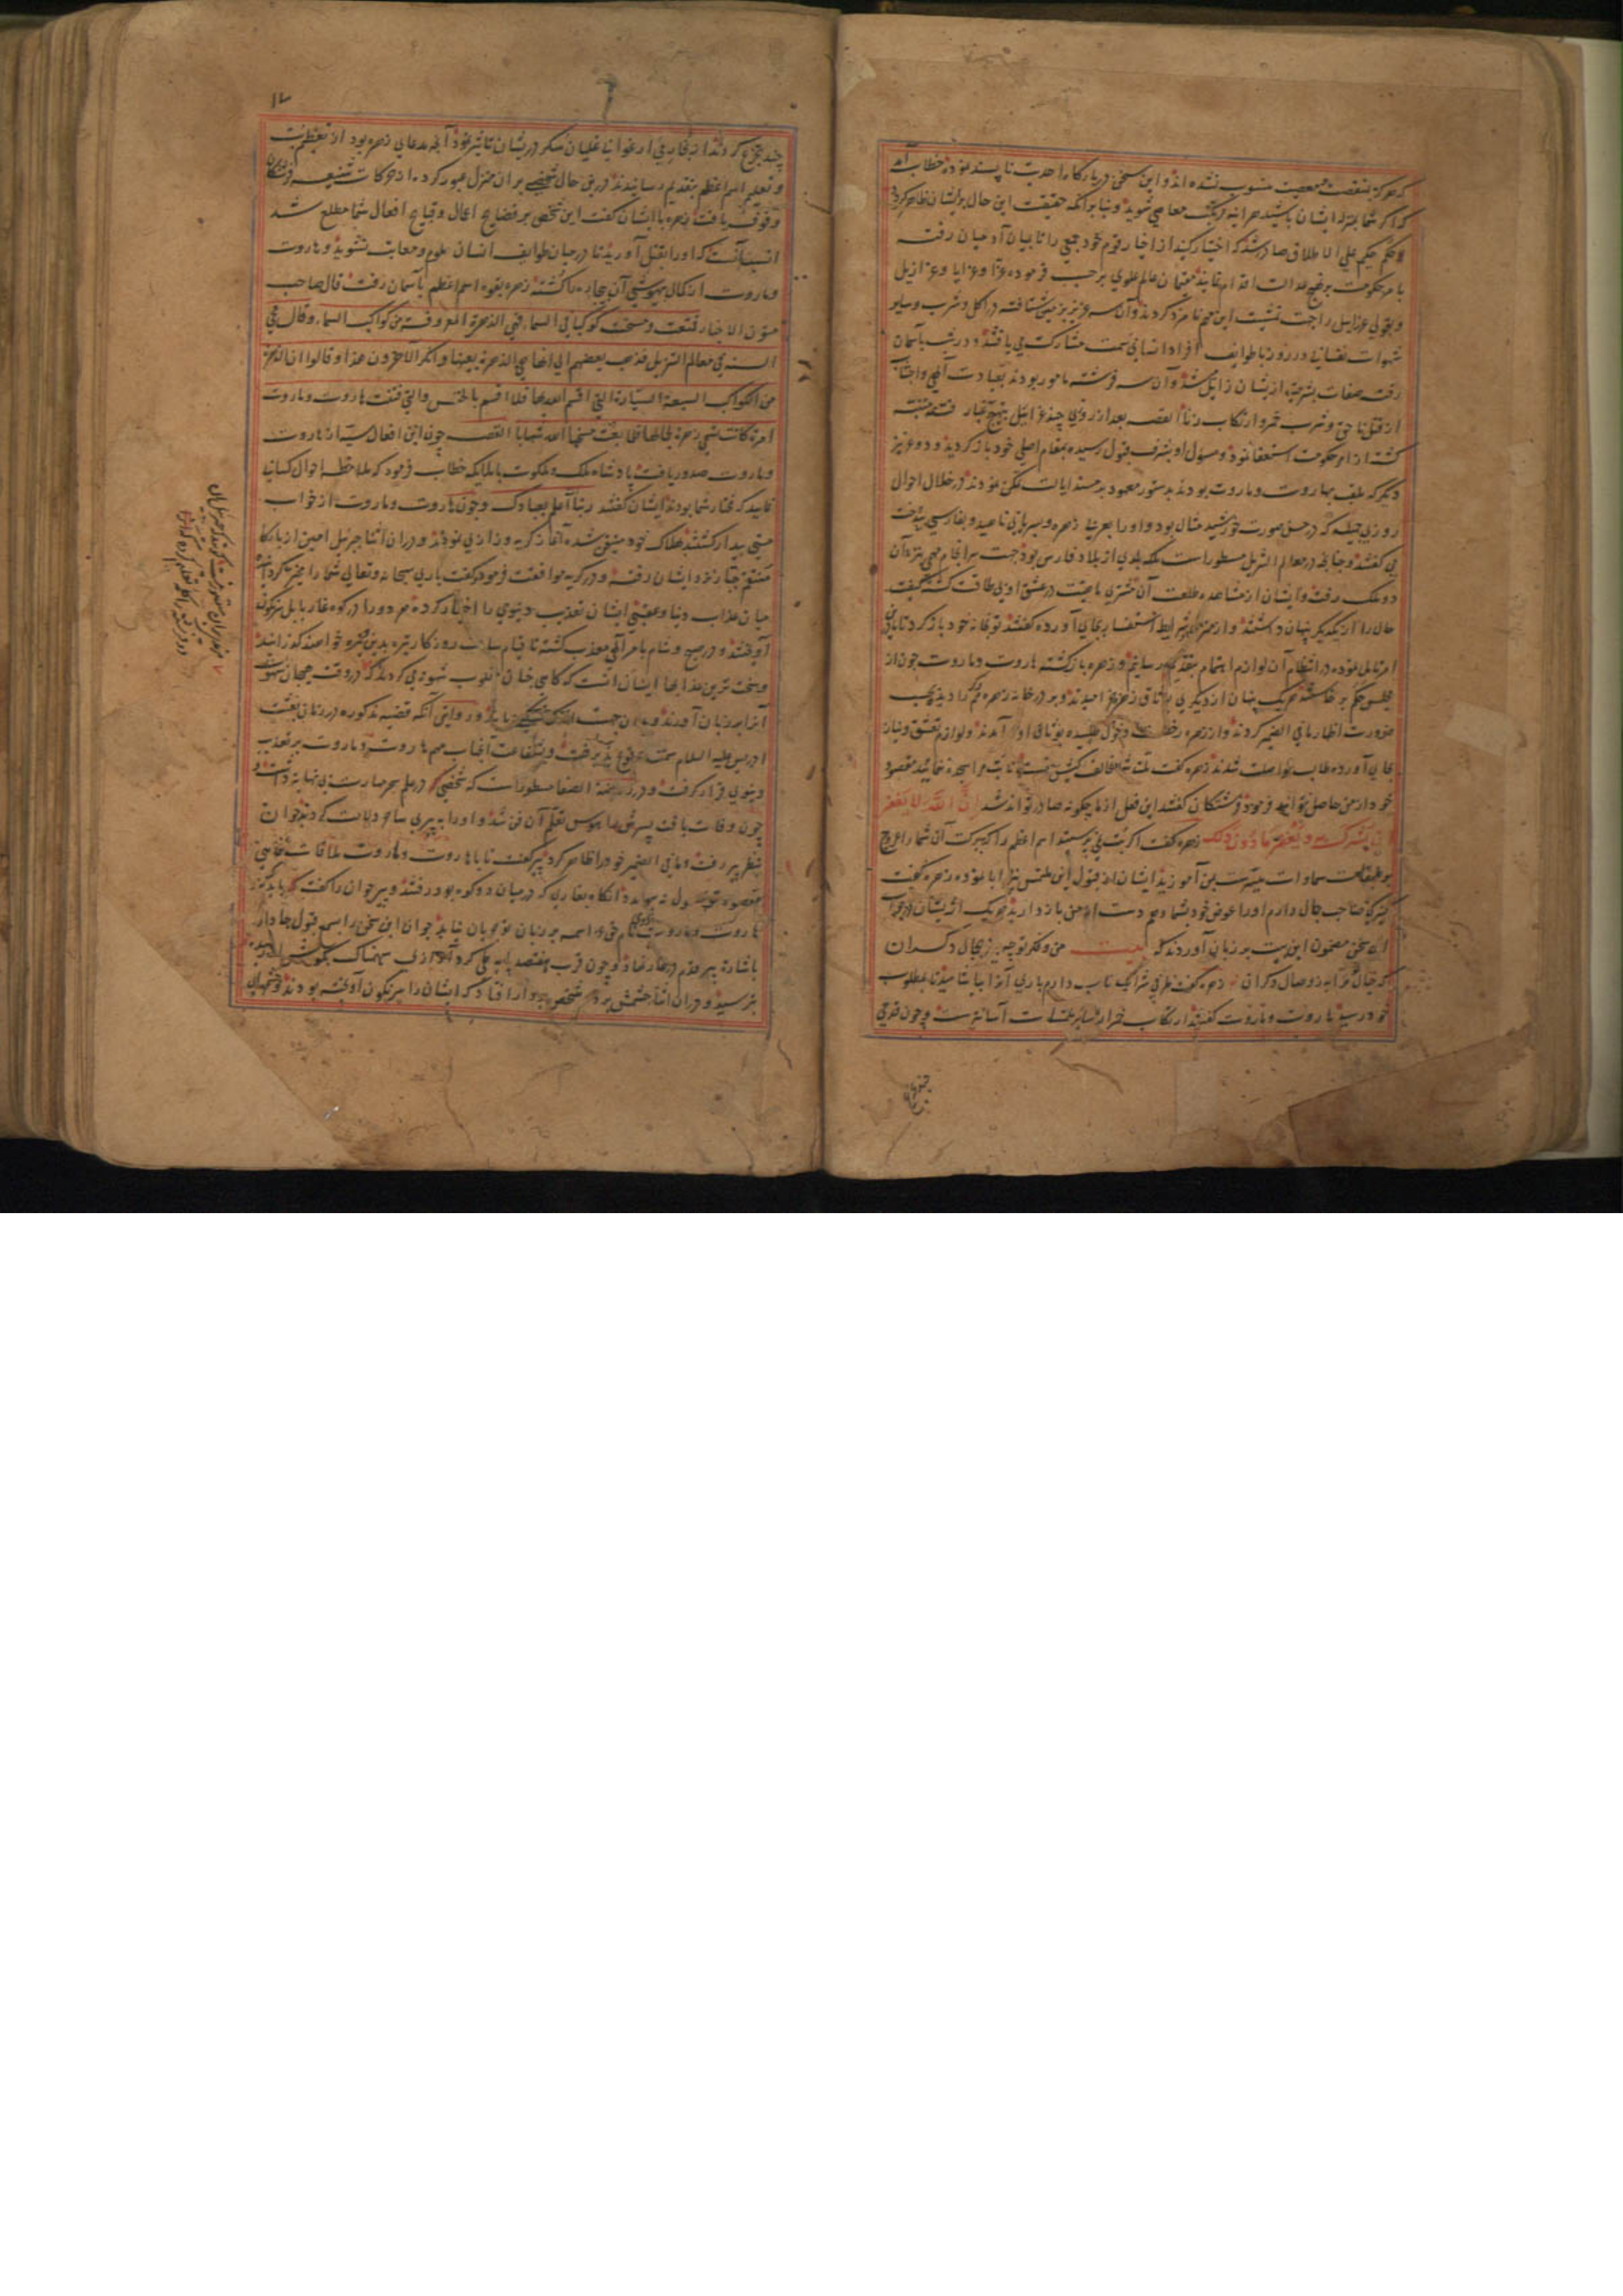 که هرگز بمنقصت معصیت منسوب نشده اند و این سخن در بارگاه احدیت ناپسند نموده خطاب آمد
که اگر شما بمنزله ایشان باشید هر آینه مرتکب معاصی شوید و بنابر آنکه حقیقت این حال بر ایشان ظاهر گردد
حکم حکیم علی الاطلاق صادر شد که اختیار کنید از اخیار قوم خود جمعی را تا بمیان آدمیان رفته
بامر حکومت بر نهج عدالت اقدام نمایند مقیمان عالم علوی بر حسب فرموده عزا و عزایا و عزازیل
و بقولی عزاییل را جهت تمشیت این مهم نامزد کردند و آن سه عزیز بزمین شتافته در اکل و شرب و سایر
شهوات نفسانی در روز با طوایف افراد انسانی سمت مشارکت می یافتند و در شب بآسمان
رفته صفات بشریه از یشان زایل میشد و آن سه فرشته مامور بودند بعبادت الهی و اجتناب
از قتل ناحق و شرب خمر و ارتکاب زنا القصه بعد از روزی چند عزاییل بنهج غبار فتنه متنبه
گشته از امر حکومت استعفا نمود و مسول او بشرف قبول رسیده بمقام اصلی خود باز گردید و دو عزیز
دیگر که ملقب بهاروت و ماروت بودند بدستور معهود بر مسند ایالت تمکن نمودند در خلال احوال
روزی جمیله که در حسن صورت خورشید مثال بود و او را بعربی زهره و بسریانی ناهید و بفارسی بیدخت
می گفتند و چنانچه در معالم التنزیل مسطور است ملکه بلدی از بلاد فارس بود جهت سرانجام مهمی نزد آن
دو ملک رفت و ایشان از مشاهده طلعت آن مشتری ماهیت در عشق او بی طاقت گشته کیفیت
حال را از یکدیگر پنهان داشتند و از زهره شرایط استفسار بجای آورده گفتند تو بخانه خود باز گرد تا ما فی
امر تامل نموده در انتظام آن لوازم اهتمام بتقدیم رسانیم و زهره باز گشته هاروت و ماروت چون از
مجلس حکم بر خاستند هر یک پنهان از دیگری بوثاق زهره خرامیدند و بر در خانه زهره همدیگر را دیده بحسب
ضرورت اظهار ما فی الضمیر کردند و از زهره رخصت دخول طلبیده بوثاق او در آمدند و لوازم تعشق و نیاز
بجای آورده طالب مواصلت شدند زهره گفت ملت شما مخالف کیش منست تا بت مرا سجده ننمایید مقصود
خود از من حاصل نتوانید فرمود فرشتگان گفتند این فعل از ما چگونه صادر تواند شد ان الله لا یغفر
ان یشرک به و یغفر ما دون ذلک زهره گفت اگر بت نمی پرستید اسم اعظم را که ببرکت آن شما را عروج
بر طبقات سماوات میسر است بمن آموزید ایشان از قبول این ملتمس نیز ابا نموده زهره گفت
کنیزک صاحب جمال دارم او را عوض خود بشما دهم دست از من باز دارید هر یک از یشان در جواب
این سخن مضمون این بیت بر زبان آوردند که بیت من و فکر تو چه بینم بجمال دگران
که جمال تو مرا به ز وصال دگران زهره گفت ظرفی شراب ناب دارم باری آنرا بیاشامید تا بمطلوب
خود رسید هاروت و ماروت گفتند ارتکاب خمر از سایر ملتمسات آسانترست و چون قدحی
چند تجرع کردند از بخار می ارغوانی غلیان سکر در یشان تاثیر نمود آنچه مدعای زهره بود از تعظیم بت
و تعلیم اسم اعظم بتقدیم رسانیدند در ین حال شخصی بر آن منزل عبور کرده از حرکات شنیعه فرشتگان
وقوف یافت زهره با ایشان گفت این شخص بر فضایح اعمال و قبایح افعال شما مطلع شد
انسب آنست که او را بقتل آورید تا در میان طوایف انسان ملوم و معاتب نشوید و هاروت
و ماروت از کمال بیهوشی آن بیچاره را کشته زهره بقوه اسم اعظم بآسمان رفت قال صاحب
متون الاخبار فتبعت و مسخت کوکبا فی السماء فهی الزهرة المعروفة من کواکب السماء و قال محی
السنة فی معالم التنزیل فذهب بعضهم الی انها هی الزهرة بعینها و انکر الآخرون هذا و قالوا ان الزهرة
من الکواکب السبعة السیارة التی اقسم الله بها فلا اقسم بالخنس والتی فتنت هاروت و ماروت
امرة کانت تسمی زهرة لجمالها فلما بغت مسخها الله شهابا القصه چون این افعال سیئه از هاروت
و ماروت صدور یافت پادشاه ملک و ملکوت با ملایکه خطاب فرمود که ملاحظه احوال کسانی
نمایید که مختار شما بودند ایشان گفتند ربنا اعلم بعبادک و چون هاروت و ماروت از خواب
مستی بیدار گشتند بهلاک خود متیقن شده آغاز گریه و زاری نمودند و در آن اثنا جبرئیل امین از بارگاه
منتقم جبار نزد ایشان رفته و در گریه موافقت فرمود گفت باری سبحانه و تعالی شما را مخیر گردانیده
میان عذاب دنیا و عقبی ایشان تعذیب دنیوی را اختیار کرده هر دو را در کوه غار بابل سرنگون
آویختند و در صبح و شام بامر الهی معذب گشته تا قیام ساعت روزگار تیره بدین وتیره خواهند گذرانید
ادریس علیه السلام سمت وقوع پذیرفت و بشفاعت آنجناب مهم هاروت و ماروت بر تعذیب
دنیوی قرار گرفت و در روضة الصفا مسطور است که شخصی که در علم سحر مهارت بی نهایت داشت
چون وفات یافت پسرش را هوس تعلم آن فن شد و او را به پیری ساحر دلالت کردند جوان
بنظر پیر رفت و ما فی الضمیر خود را ظاهر کرد پیر گفت تا با هاروت و ماروت ملاقات ننمایی
مقصود تو بحصول نه پیوندد آنگاه بغاری که در میان دو کوه بود رفتند و پیر جوان را گفت که باید که نزد
هاروت و ماروت نام حق اسمه بر زبان تو جریان نیابد جوان این سخن را بسمع قبول جا داد
باشاره پیر قدم در غار نهاد و چون قرب هفتصد پایه طی کرد آواز سهمناک بگوشش رسیده
بترسید و در آن اثنا چشمش بر دو شخص پردار افتاد که ایشان را سرنگون آویخته بودند